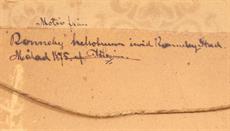 Motiv från
"Ronneby" hälsobrunn invid Ronneby Stad.
Målad 1875. af